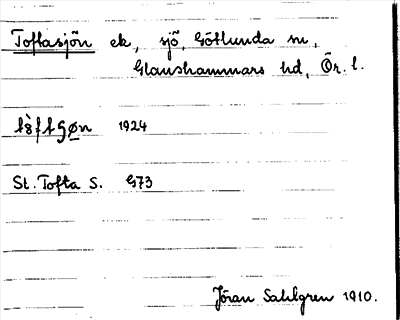 Toftasjön ek, sjö, Götlunda sn,
Glanshammars hd, Ör. l.
1924
St. Tofta S. G73
Jöran Sahlgren 1910.